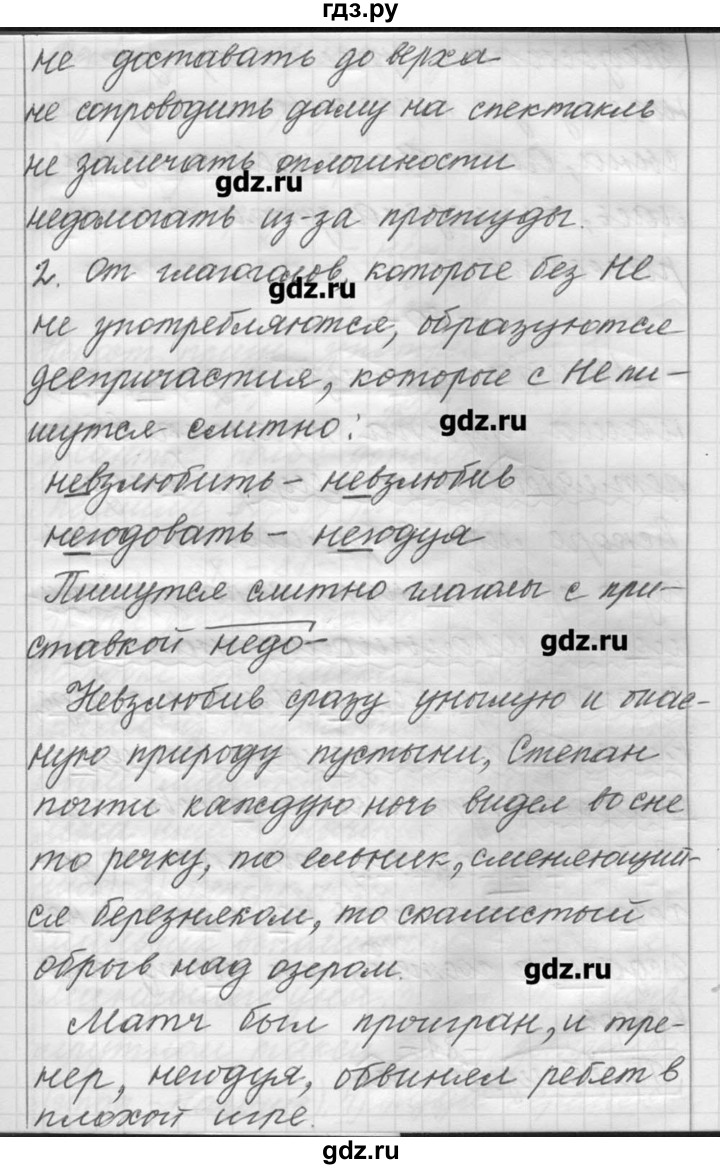 гдз.ру
не доставать до верха
не сопроводить даму на спектакль
не замечать оплошности
gdz.ru
недомогать из-за простуды.
2. От глагоголов, которые без НЕ
gdz.ru
не употребляются, образуются
деепричастия, которые с Не пи-
шутся слитно:
gdz.ru
невзлюбить – невзлюбив
негодовать – негодуя
Пишутся слитно глаголы с при-
ставкой недо-
gdz.ru
Невзлюбив сразу унылую и опас-
ную природу пустыни, Степан
почти каждую ночь видел во сне
то речку, то ельник, сменяющий-
ся березняком, то скалистый
обрыв над озером.
gdz.ru
Матч был проигран, и тре-
нер, негодуя, обвинял ребят в
плохой игре.
gdz.ru